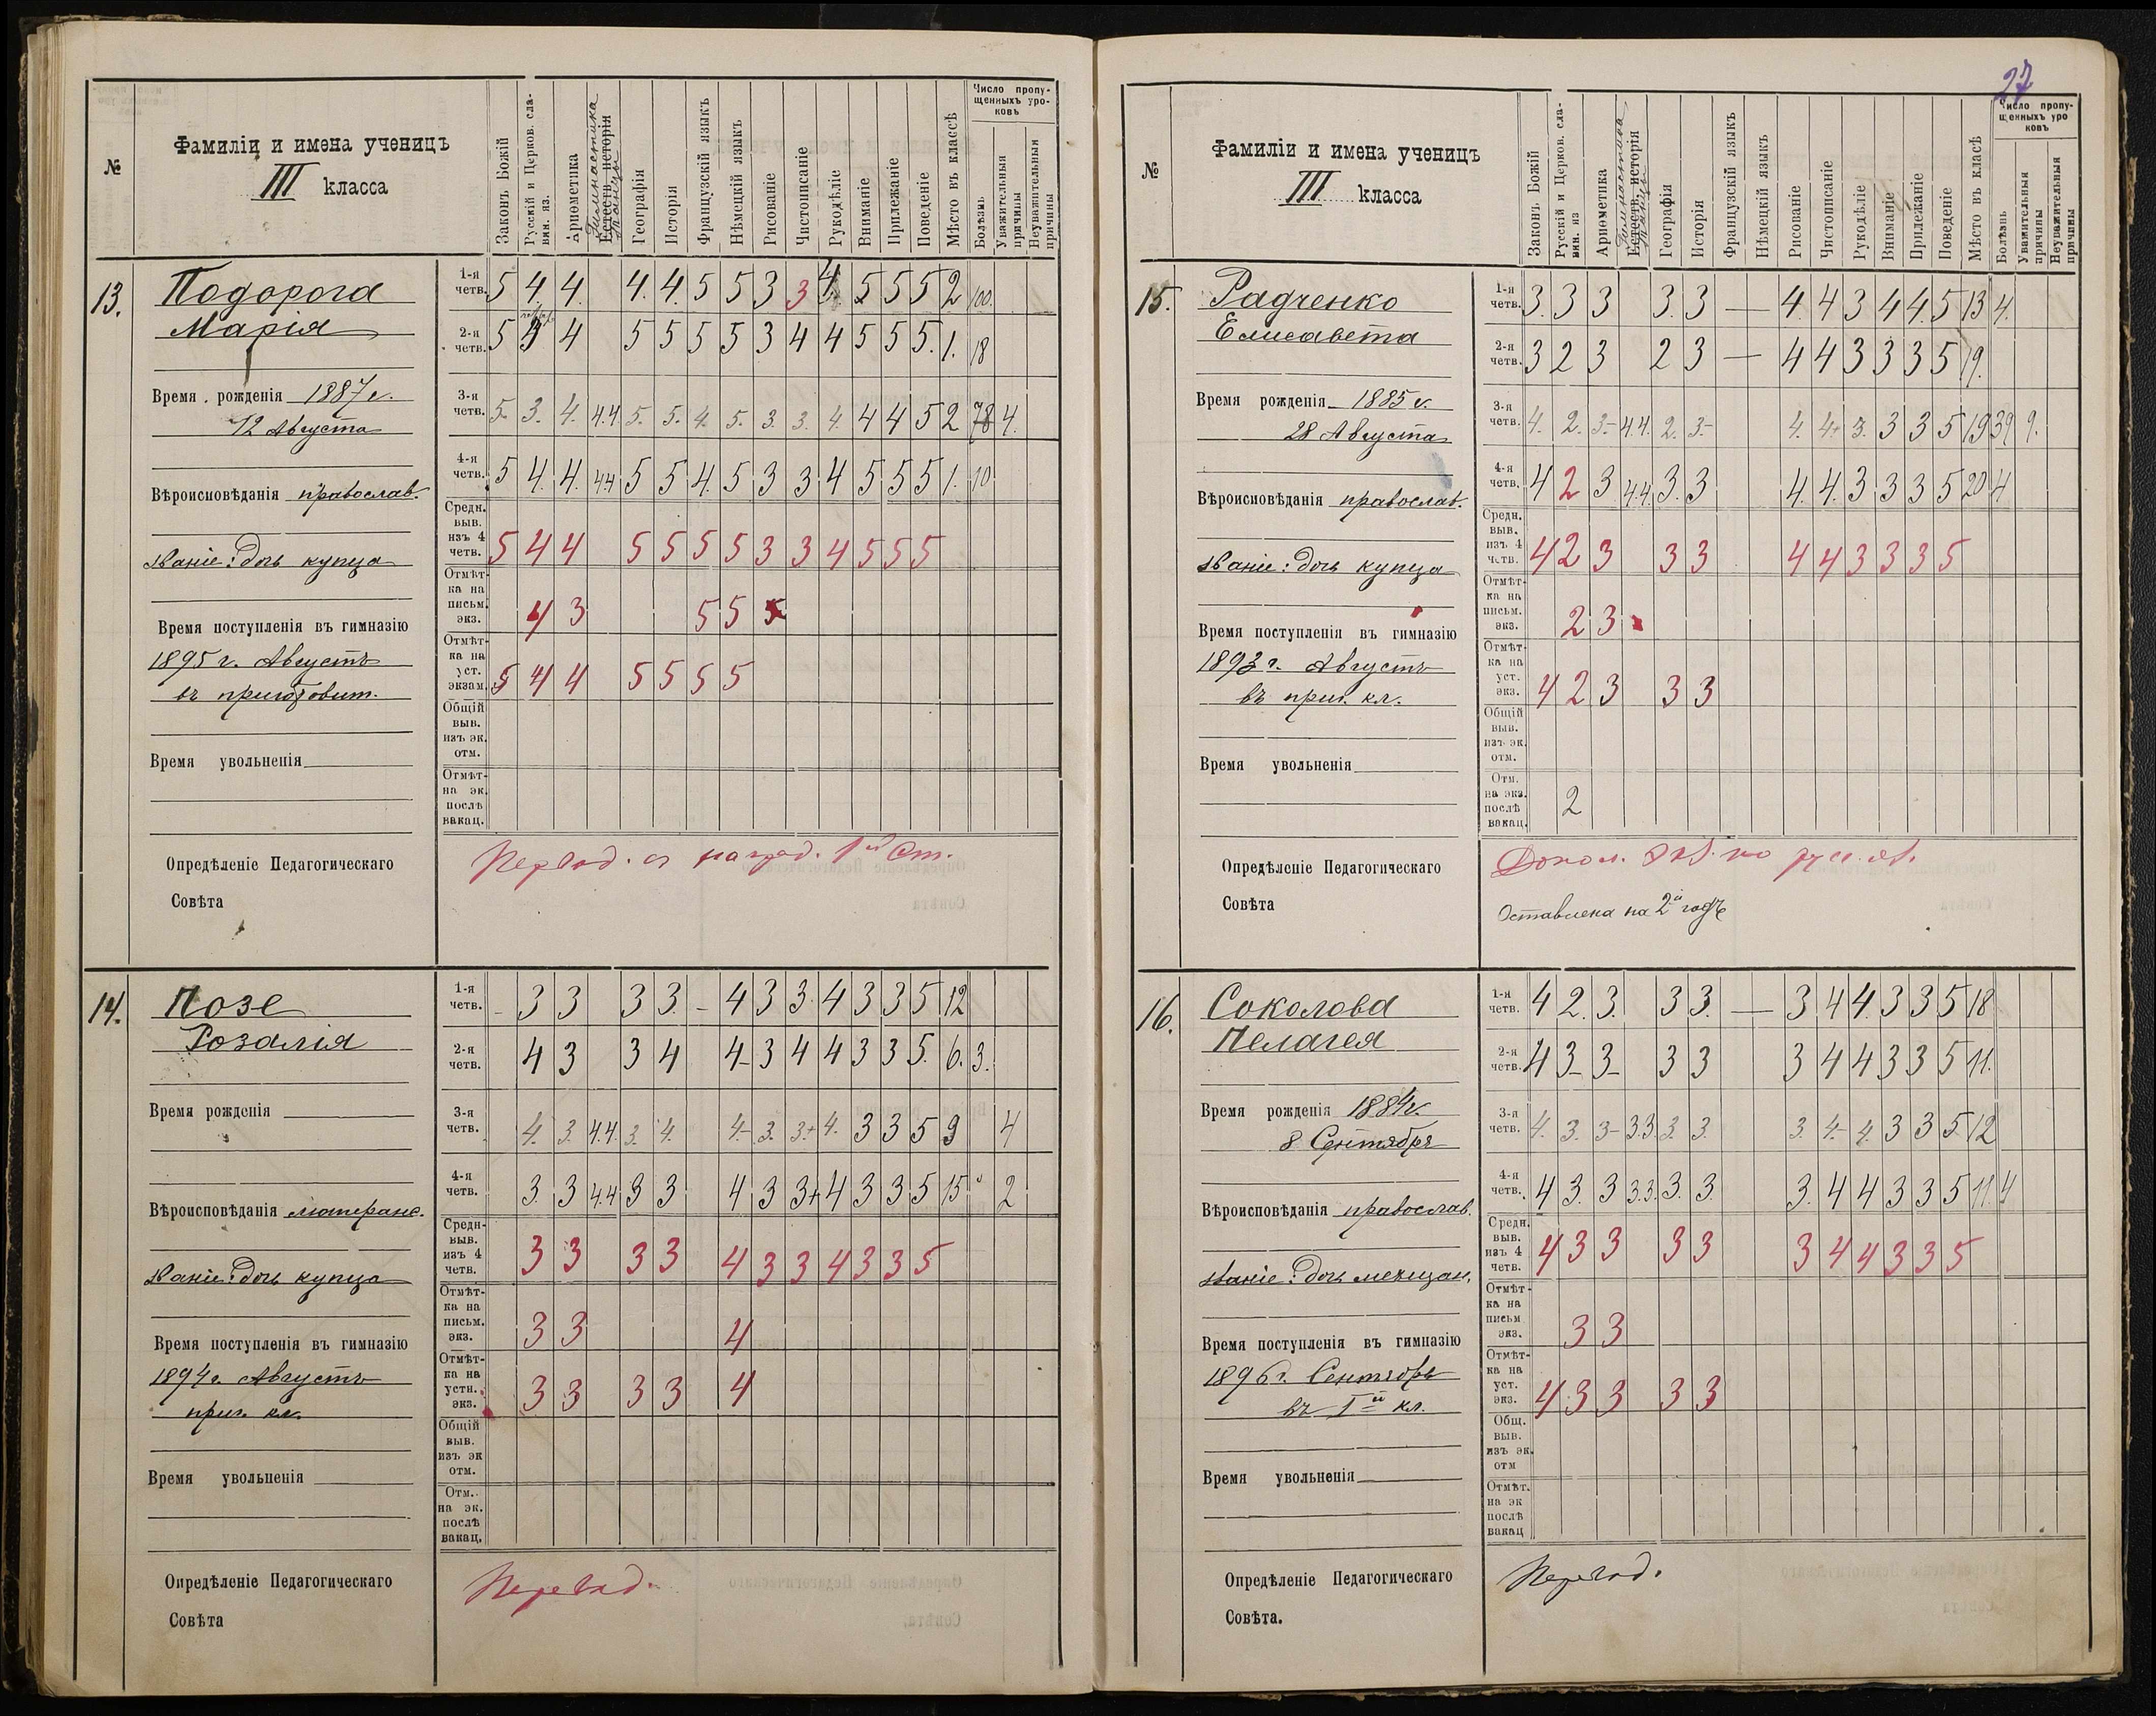 №
Фамиліи и имена ученицъ
III класса
Законъ Божій
Русскій и Церков. сла-
вян. яз.
Ариѳметика
Гимнастика
Естеств. исторія
Танцы
Географія
Исторія
Французскій языкъ
Нѣмецкій языкъ
Рисованіе
Чистописаніе
Рукодѣліе
Вниманіе
Прилежаніе
Поведеніе
Мѣсто въ классѣ
Число пропу-
щенныхъ уро-
ковъ
Болѣзнь
Уважительныя
причины
Неуважительныя
причины
13.
Подорога
Марія
Время рожденія 1887 г.
12 Августа
Вѣроисповѣданія православ.
Званіе: дочь купца
Время поступленія въ гимназію
1895 г. Августъ
въ приготовит.
Время увольненія
Опредѣленіе Педагогическаго
Совѣта
1-я четв. 5 4. 4. 4. 4. 5 5 3 3 4. 5 5 5 2 100.
2-я четв. 5 3 4 5 5 5 5 3 4 4 5 5 5. 1. 18
3-я четв. 5. 3. 4. 4.4. 5. 5. 4. 5. 3. 3. 4. 4 4 5 2 78 4.
4-я четв. 5 4. 4. 4.4 5 5 4. 5 3 3 4 5 5 5 1. 10
Средн. выв. изъ 4 четв. 5 4 4 5 5 5 5 3 3 4 5 5 5
Отмѣт-
ка на
письм.
экз. 4 3 5 5
Отмѣт-
ка на
уст.
экзам. 5 4 4 5 5 5 5
Общій
выв.
изъ эк.
отм.
Отмѣт-
на эк.
послѣ
вакац.
Перевод. съ наград. 1ой Ст.
14.
Позе
Розалія
Время рожденія
Вѣроисповѣданія лютеранс.
Званіе: дочь купца
Время поступленія въ гимназію
1894 г. Августъ
приг. кл.
Время увольненія
Опредѣленіе Педагогическаго
Совѣта
1-я четв. - 3 3 3 3. - 4 3 3. 4 3 3 5 12
2-я четв. 4 3 3 4 4- 3 4 4 3 3 5. 6. 3.
3-я четв. 4. 3. 4.4. 3. 4. 4.- 3. 3.+ 4. 3 3 5 9 4
4-я четв. 3. 3 4.4 3 3 4 3 3+ 4 3 3 5 15 2
Средн-
выв.
изъ 4
четв. 3 3 3 3 4 3 3 4 3 3 5
Отмѣт-
ка на
письм.
экз. 3 3 4
Отмѣт-
ка на
устн.
экз. 3 3 3 3 4
Общій
выв.
изъ эк
отм.
Отм.
на эк.
послѣ
вакац.
Перевод.
27
№
Фамиліи и имена ученицъ
III класса
Законъ Божій
Русскій и Церков. сла-
вян. яз
Ариѳметика
Гимнастика
Естеств. исторія
Танцы
Географія
Исторія
Французскій языкъ
Нѣмецкій языкъ
Рисованіе
Чистописаніе
Рукодѣліе
Вниманіе
Прилежаніе
Поведеніе
Мѣсто въ класѣ
Число пропу-
щенныхъ уро
ковъ
Болѣзнь
Уважительныя
причины
Неуважительныя
причины
15.
Радченко
Елисавета
Время рожденія 1885 г.
28 Августа
Вѣроисповѣданія православ.
Званіе: дочь купца
Время поступленія въ гимназію
1893 г. Августъ
въ приг. кл.
Время увольненія
Опредѣленіе Педагогическаго
Совѣта
1-я четв. 3. 3 3 3. 3 — 4. 4 3 4 4. 5 13 4.
2-я четв. 3 2 3 2 3 — 4 4 3 3 3 5 19.
3-я четв. 4. 2. 3.- 4.4. 2. 3.- 4. 4.+ 3. 3 3 5 19 39 9.
4-я четв. 4 2 3 4.4. 3. 3 4. 4. 3 3 3 5 20 4
Средн.
выв.
изъ 4
четв. 4 2 3 3 3 4 4 3 3 3 5
Отмѣт-
ка на
письм.
экз. 2 3
Отмѣт-
ка на
уст.
экз. 4 2 3 3 3
Общій
выв.
изъ эк.
отм.
Отм.
на экз.
послѣ
вакац. 2
Допол. экз. по русс. яз.
Оставлена на 2й годъ
16.
Соколова
Пелагея
Время рожденія 1884 г.
8 Сентября
Вѣроисповѣданія православ.
Званіе: дочь мещан.
Время поступленія въ гимназію
1896 г. Сентябрь
въ Iй кл.
Время увольненія
Опредѣленіе Педагогическаго
Совѣта.
1-я четв. 4 2. 3. 3 3. — 3 4 4. 3 3 5 18
2-я четв. 4 3- 3- 3 3 3 4 4 3 3 5 11.
3-я четв. 4. 3. 3- 3.3. 3. 3. 3. 4.- 4. 3 3 5 12
4-я четв. 4 3. 3 3.3. 3. 3. 3. 4 4 3 3 5 11. 4
Средн.
выв.
изъ 4
четв. 4 3 3 3 3 3 4 4 3 3 5
Отмѣт-
ка на
письм
экз. 3 3
Отмѣт-
ка на
уст.
экз. 4 3 3 3 3
Общ.
выв.
изъ эк.
отм
Отмѣт.
на эк
послѣ
вакац
Перевод.